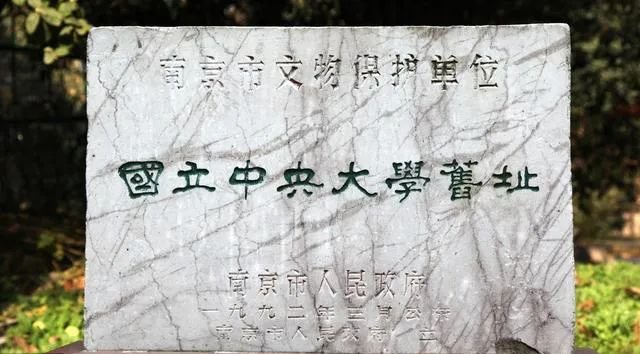 南京市文物保护单位
國立中央大學舊址
南京市人民政府
一九九二年三月公布
南京市人民政府 立